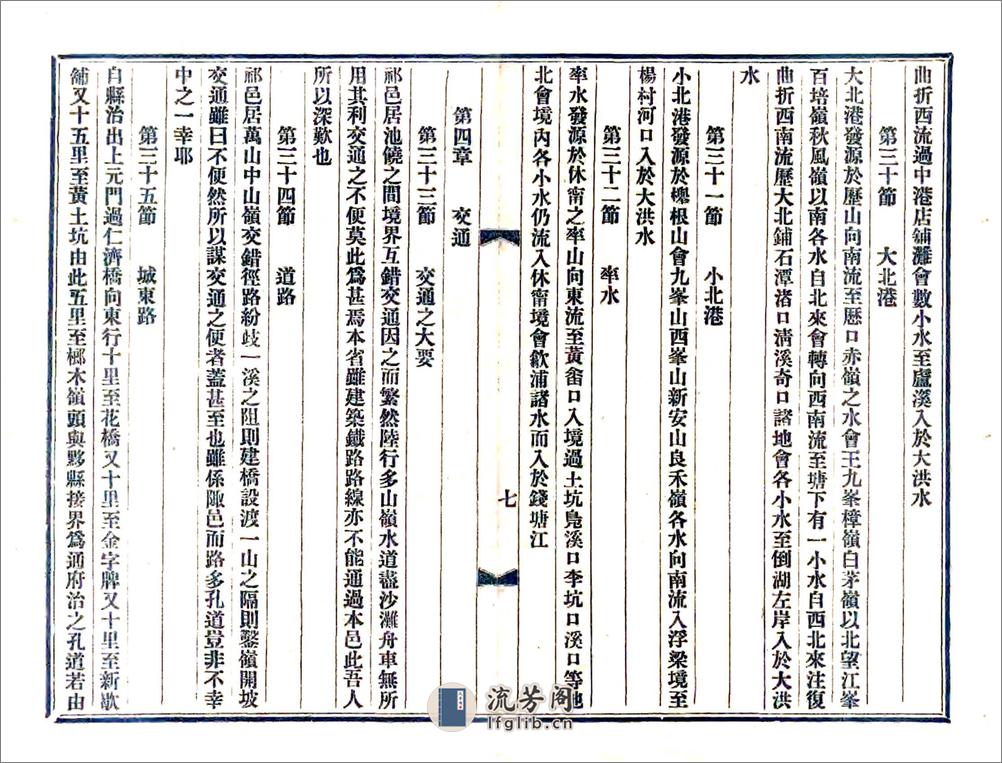 曲折西流過中港店舖灘會數小水至廬溪入於大洪水
第三十節　大北港
大北港發源於歷山向南流至歷口赤嶺之水會王九峯樟嶺白茅嶺以北望江峯
百培嶺秋風嶺以南各水自北來會轉向西南流至塘下有一小水自西北來注復
曲折西南流歷大北鋪石潭渚口清溪奇口諸地會各小水至倒湖左岸入於大洪
水
第三十一節　小北港
小北港發源於櫸根山會九峯山西峯山新安山良禾嶺各水向南流入浮梁境至
楊村河口入於大洪水
第三十二節　率水
率水發源於休甯之率山向東流至黃畬口入境過土坑鳧溪口李坑口溪口等地
北會境內各小水仍流入休甯境會歙浦諸水而入於錢塘江
七
第四章　交通
第三十三節　交通之大要
祁邑居池饒之間境界互錯交通因之而繁然陸行多山嶺水道盡沙灘舟車無所
用其利交通之不便莫此爲甚焉本省雖建築鐵路路線亦不能通過本邑此吾人
所以深歎也
第三十四節　道路
祁邑居萬山中山嶺交錯徑路紛歧一溪之阻則建橋設渡一山之隔則鑿嶺開坡
交通雖曰不便然所以謀交通之便者蓋甚至也雖係陬邑而路多孔道豈非不幸
中之一幸耶
第三十五節　城東路
自縣治出上元門過仁濟橋向東行十里至花橋又十里至金字牌又十里至新歇
舖又十五里至黃土坑由此五里至榔木嶺頭與黟縣接界爲通府治之孔道若由
流芳阁
lfglib.cn